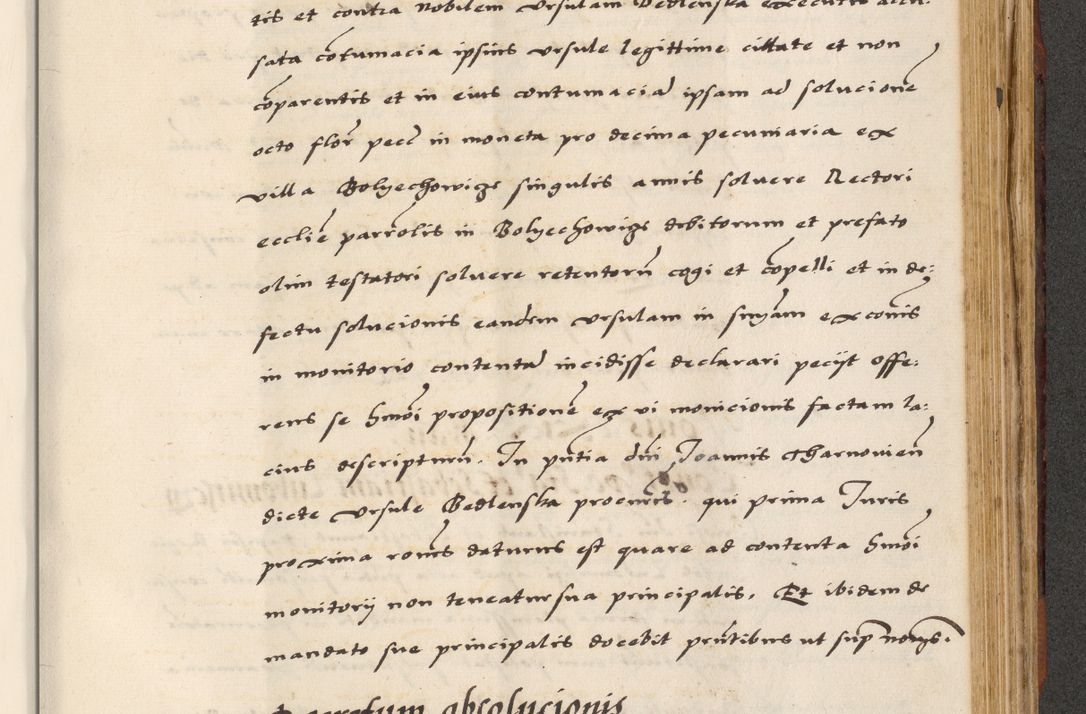 tis et contra Nobilem Ursulam Bedlenska executio accu:
sata cōtumacia ipsius Ursule legittime cittate et non
cōparentis et in eius contumaciā ipsam ad solucionē
octo flor̄ pecē in moneta pro decima pecuniaria ex
villa Bolyechowize singulis annis solvere Rectori
ecclie parrōlis in Bolyechowize debitorum et prefato
olim testatori solvere retentorū cogi et cōpelli et in de:
fectu solucionis eandem Ursulam in snyām exconis
in monitorio contentā incidisse declarari peciit offe:
rens se hmōi propositionē ex vi monicionis factam la:
cius descripturū. In pūtia dūi Joannis Charnovien̄
dicte Ursule Bedlenska procuris. qui prima Juris
proxima roneis daturus est quare ad contenta hmōi
monitorij non teneatur sua principalis, Et ibidem de
mandato sue principalis docebit prūtibus ut sup̄ no͞rijs.
Decretum absolucionis